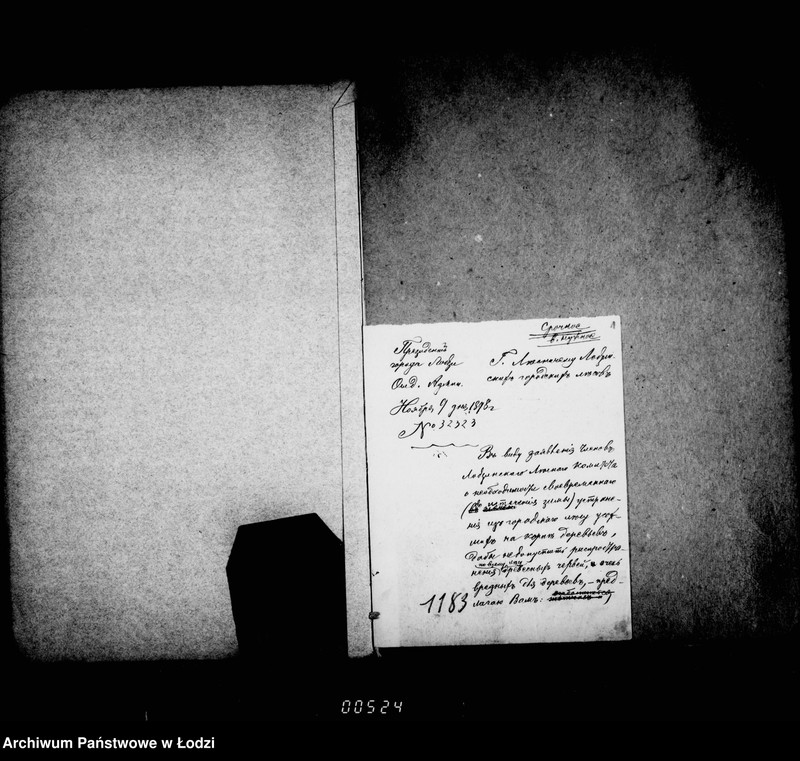 Срочное
в. нужное
Президентъ
города Лодзи
Отд. Админ.
Ноября 9 дня 1898 г
№ 32323
Г. Лѣсничему Лодзин-
скихъ городскихъ лѣсовъ
Въ виду заявленія Членовъ
Лодзинскаго Лѣснаго Комитета
о необходимости своевременнаго
(въ теченіи зимы) устране-
нія изъ городскаго лѣсу усох-
шихъ на корнѣ деревьевъ,
дабы не допустить распростра-
ненія древесныхъ червей, очень
вредныхъ для деревьевъ, – пред-
лагаю Вамъ:
1183
00524
Archiwum Państwowe w Łodzi